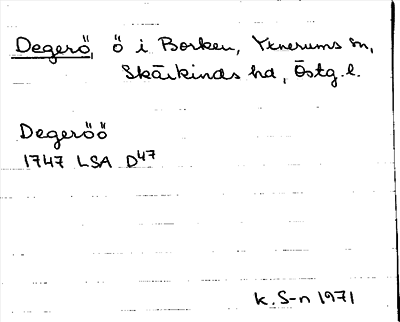 Degerö, ö i Borken, Yxnerums sn,
Skärkinds hd, Östg. l.
Degeröö
1747 LSA D47
K. S-n 1971